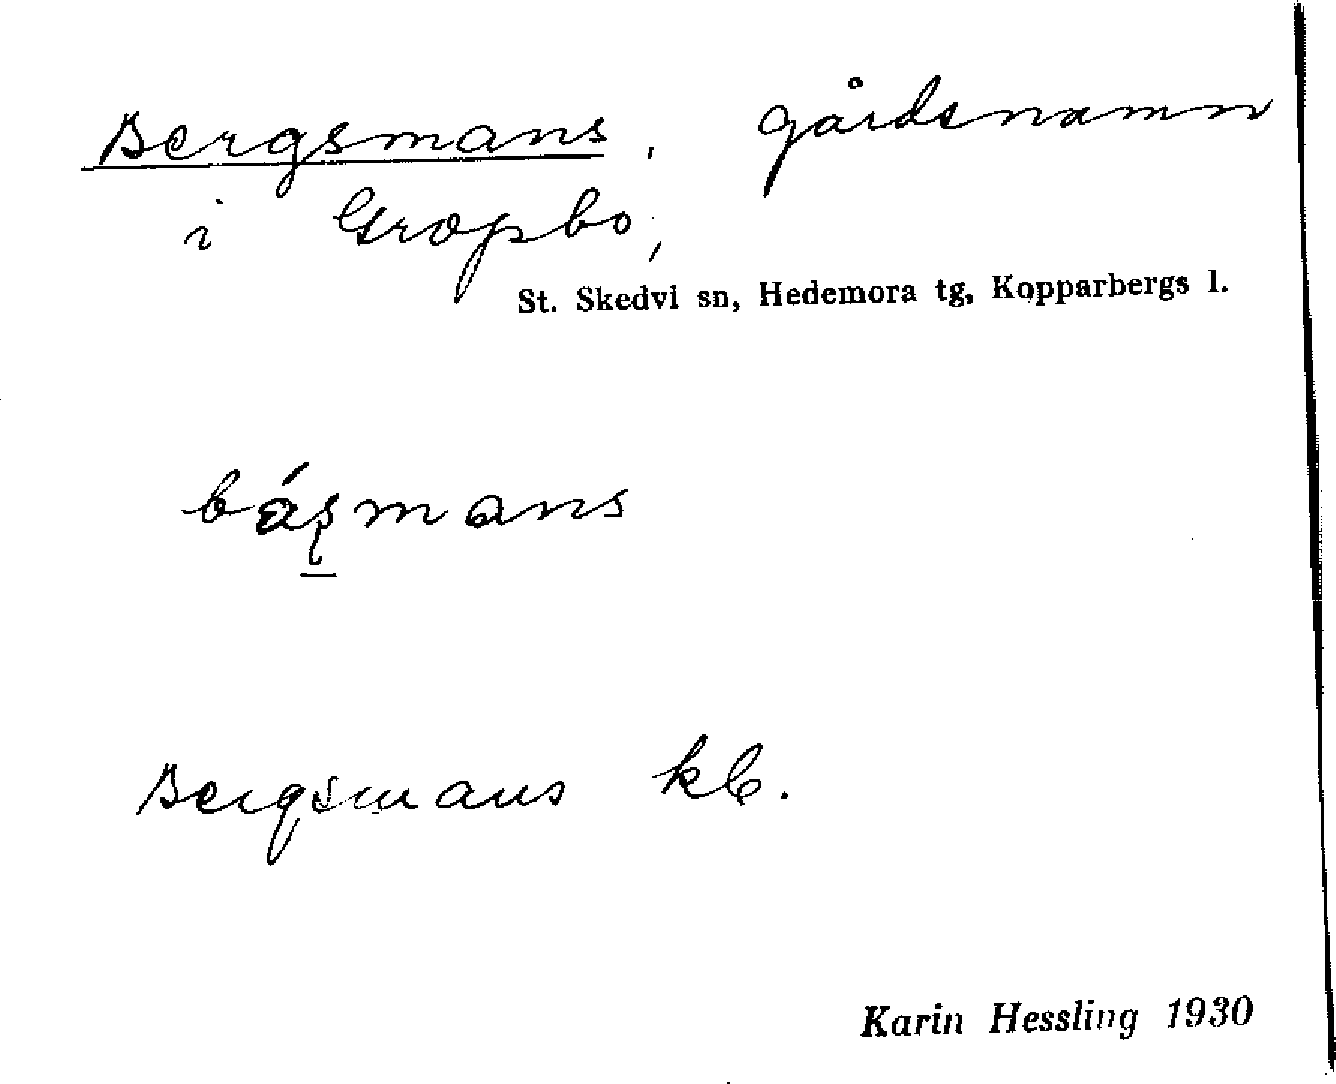 Bergsmans, gårdsnamn
i Gropbo,
St. Skedvi sn, Hedemora tg, Kopparbergs l.
báʂmans
Bergsmans kb.
Karin Hessling 1930